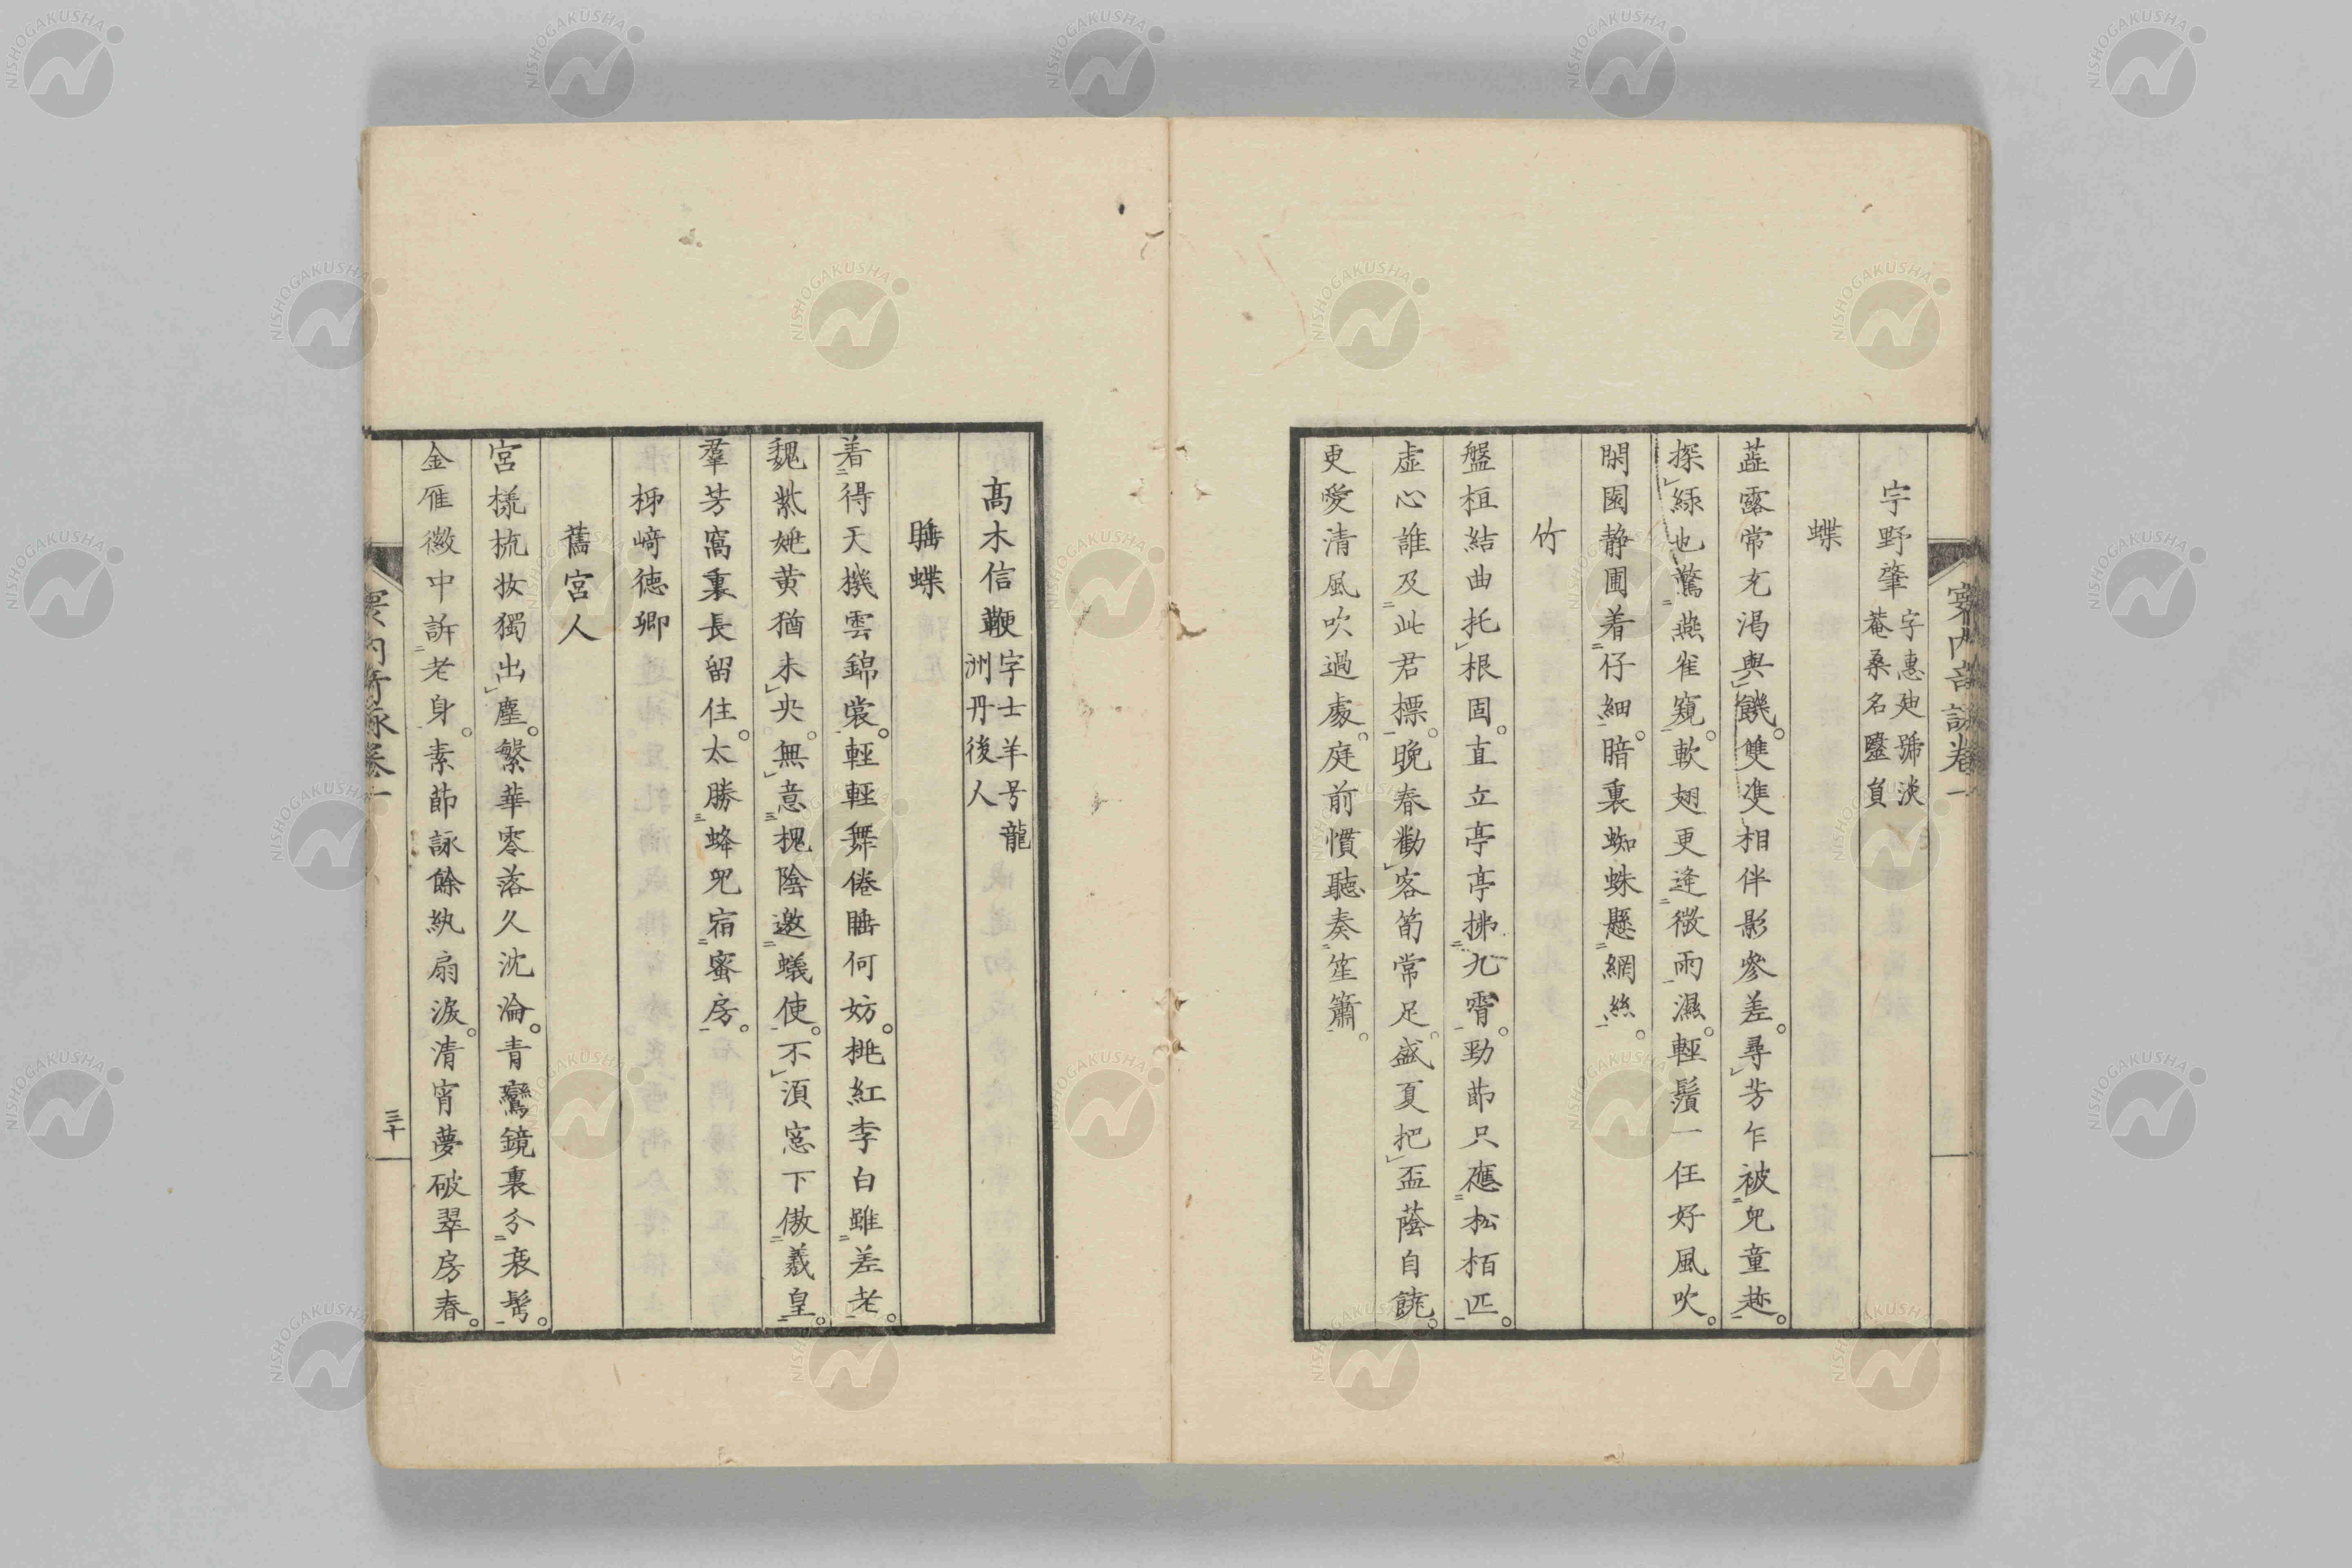 宇野肇 字惠廸號淡菴桑名壂負
蝶
蕋露常充渴與饑雙隻相伴影參差尋芳乍被兒童趂
探綠也驚燕雀窺軟翅更逢微雨濕輕鬚一任好風吹
閑園静圃着仔細暗裏蜘蛛懸網絲
竹
盤桓結曲托根固直立亭亭拂九霄勁莭只應松栢匹
虛心誰及此君標晚春勸客筍常足盛夏把盃蔭自饒
更愛清風吹過處庭前慣聽奏笙簫
髙木信鞭 字士羊号龍洲丹後人
睡蝶
着得天機雲錦裳輕輕舞倦睡何妨桃紅李白雖差老
魏紫姚黄猶未央無意槐陰邀蟻使不須窓下傲羲皇
羣芳窩裏長留住太勝蜂兒宿蜜房
柹﨑徳卿
舊宮人
宮樣梳妝獨出塵繁華零落久沈淪青鸞鏡裏分衰髩
金雁徽中訴老身素莭詠餘紈扇淚清宵夢破翠房春
三十